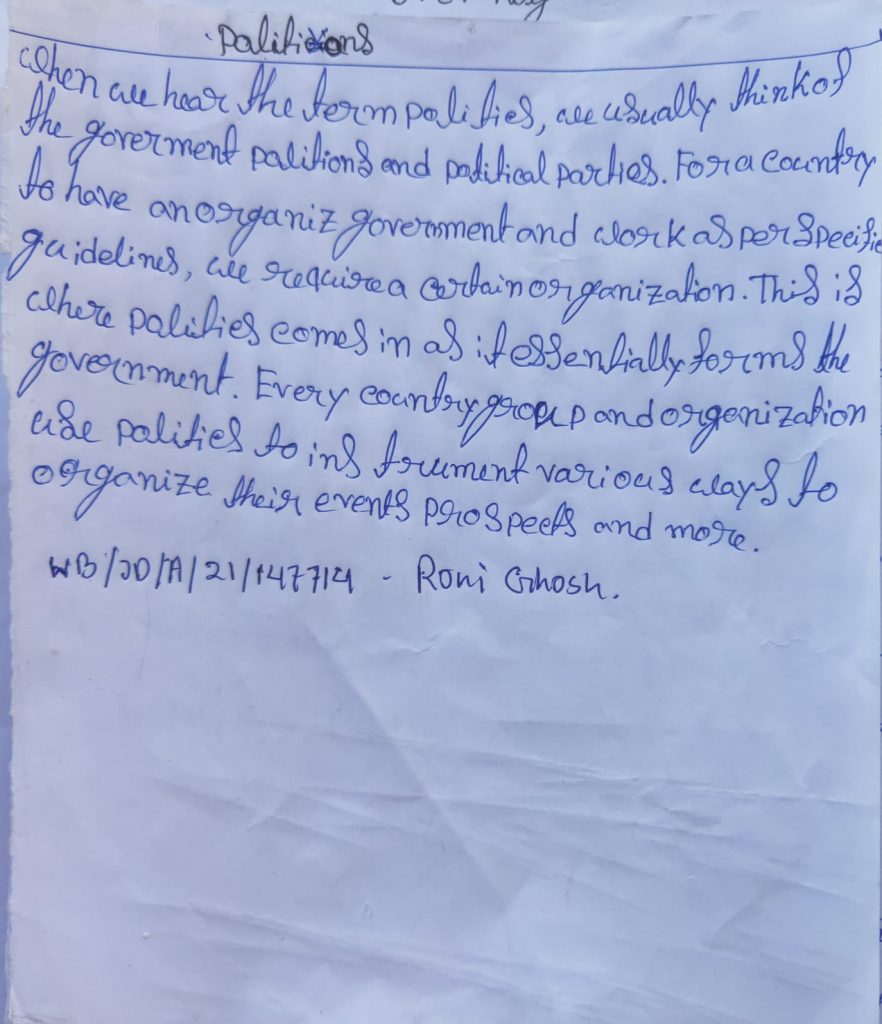 Palitions
When we hear the term palities, we usually think of
the goverment palitions and patitical parties. For a country
to have an organiz government and work as per specific
guidelines, we require a certain organization. This is
where palities comes in as it essentially forms the
government. Every country group and orgenization
use palities to ins trument various ways to
organize their events prospects and more.
WB/JD/A/21/147714 - Roni Ghosh.